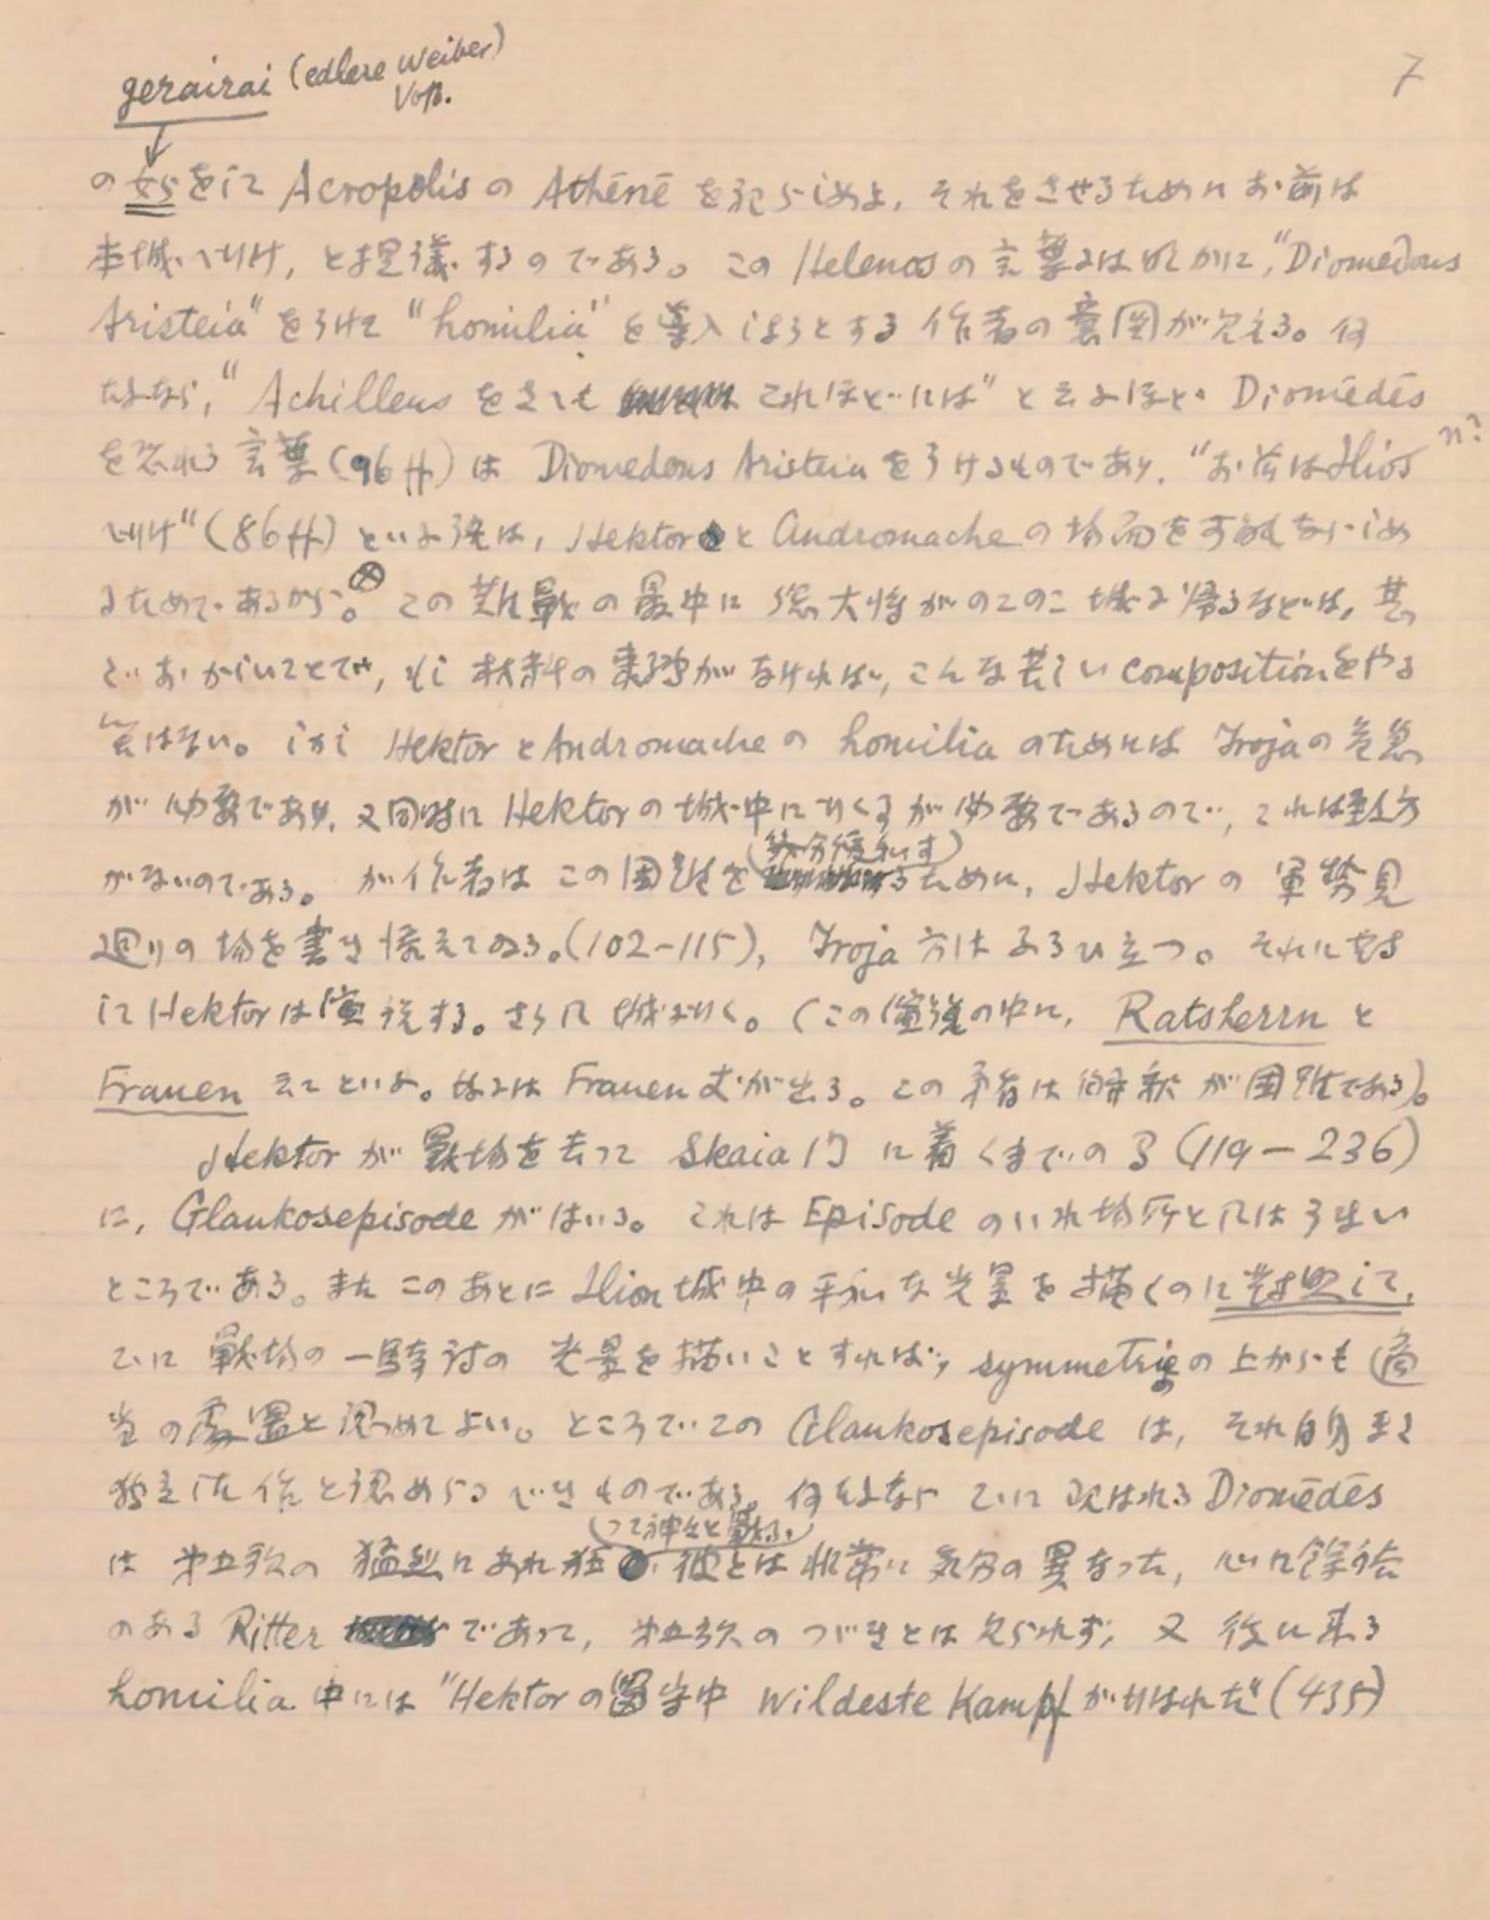 7
gerairai (edlere Weiber)
Voß.
の女らをして Acropolis の Athēnē を祀らしめよ、それをさせるために お前は
本城へ行け, と提議するのである。この Helenos の言葉には明かに, "Diomedous
Aristeia" をうけて "homilia" を導入しようとする作者の意図が見える。何
となれば, "Achilleus をさへも これほどには" と云ふほど Diomēdēs
を恐れる言葉 (96 ff) は Diomedous Aristeia をうけるものであり, "お前は Ilios n?
へ行け" (86 ff) といふ所は, Hektor と Andromache の場面を可能ならしめ
るためであるから。⊗ この難戦の最中に 総大将がのこのこ城に帰るなどは, 甚
だおかしいことで, もし材料の束縛がなければ, こんな苦しい composition をやる
筈はない。しかし Hektor と Andromache の homilia のためには Troja の危急
が必要であり, 又同時に Hektor の城中に行く事が必要であるので, これは致方
がないのである。が作者はこの困難を (幾分緩和す) るために, Hektor の 軍勢見
廻りの場を書き添えてゐる。(102-115), Troja 方はふるひ立つ。それに対
して Hektor は演説する。さうして城に行く。(この演説の中に, Ratsherrn と
Frauen 云々といふ。後には Frauen だけが出る。この矛盾は解釈が困難である)。
Hektor が戦場を去って Skaia 門に着くまでの間 (119-236)
に, Glaukosepisode がはいる。これは Episode のいれ場所としてはうまい
ところである。またこのあとに Ilion 城中の平和な光景を描くのに対照して,
ここに戦場の一騎討の光景を描いたとすれば, symmetrie の上からも適
当の処置と認めてよい。ところでこの Glaukosepisode は, それ自身また
独立した作と認めらるべきものである。何となれば ここに現はれる Diomēdēs
は 第五歌の 猛烈にあれ狂 (って神々と戦ふ) 彼とは非常に気分の異なった, 心に余裕
のある Ritter であって, 第五歌のつづきとは見られず, 又後に来る
homilia 中には "Hektor の留守中 wildeste Kampf が行はれた" (435)